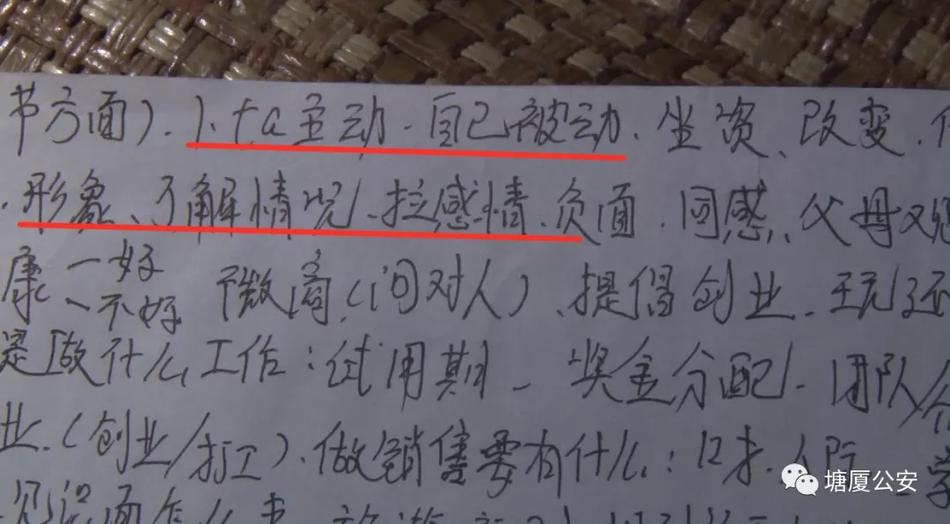 节方面).1、ta主动.自己被动、坐资、改变、
.形象、了解情况、拉感情、负面.同感、父母
康一好
、不好 微商(问对人)、提倡创业.
是做什么工作:试用期-奖金分配-团队
业.(创业/打工).做销售要有什么:口才、人际
塘厦公安